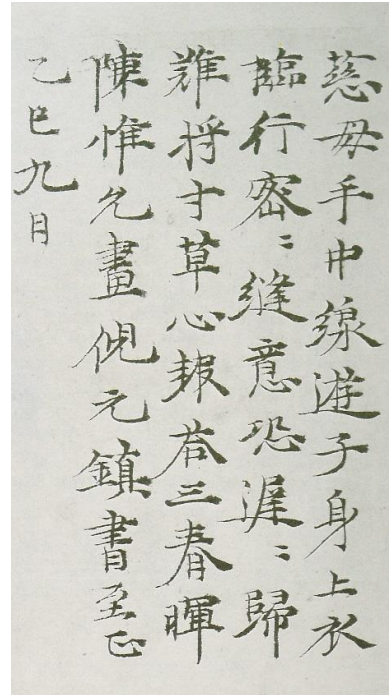 慈母手中線遊子身上衣
臨行密〻縫意恐遲〻歸
難將寸草心報答三春暉
陳惟允畫倪元鎮書至正
乙巳九日